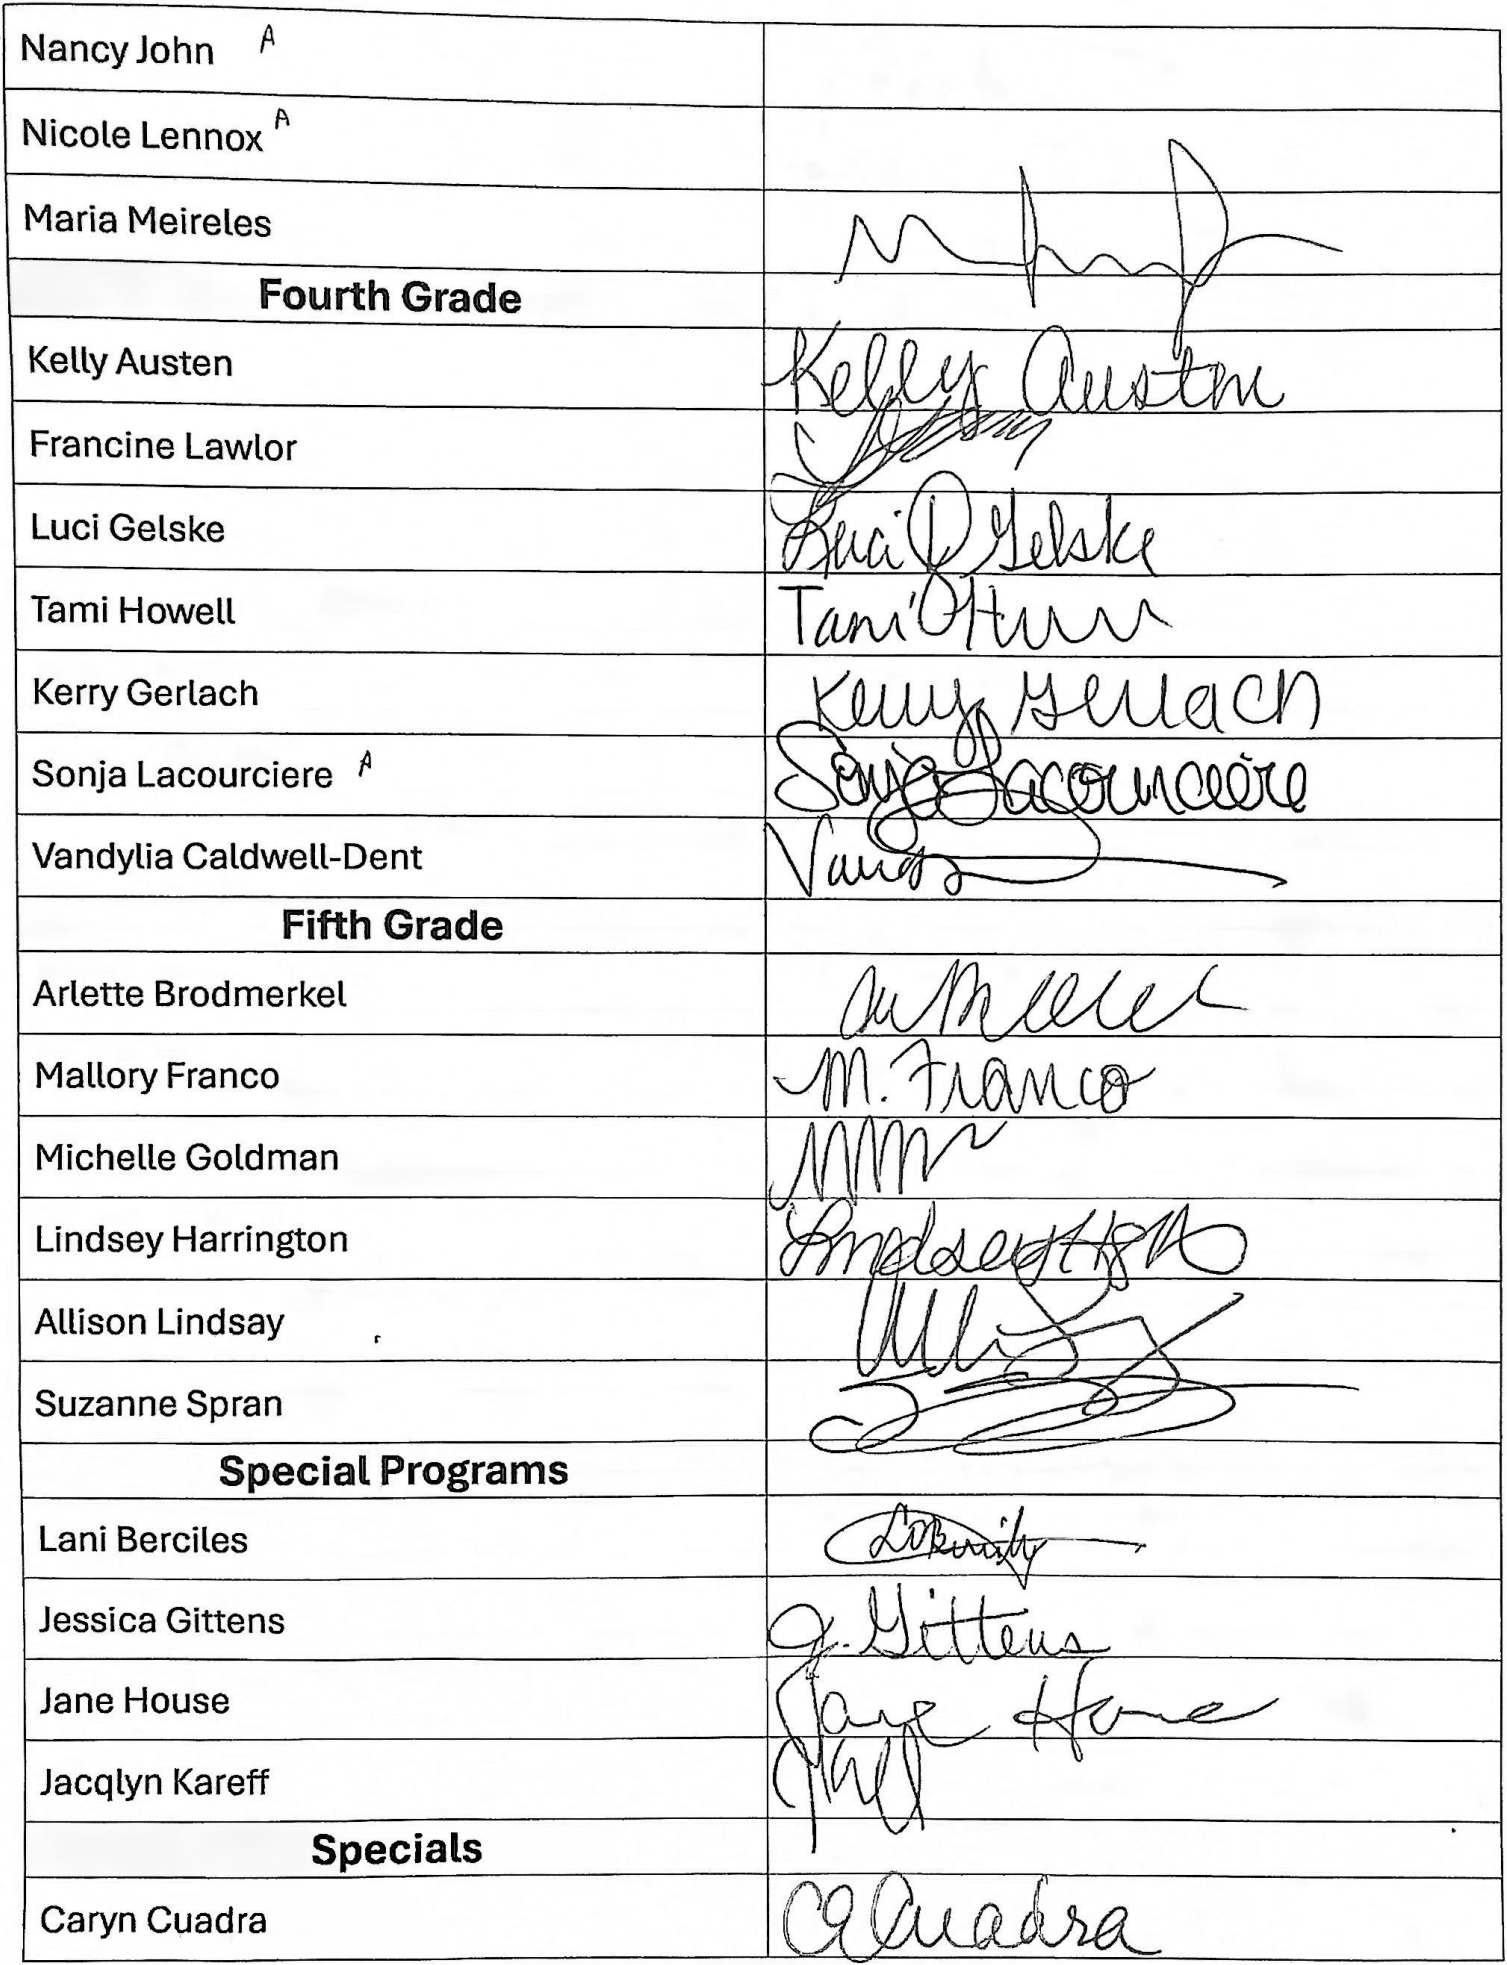 Nancy John A
Nicole Lennox A
Maria Meireles
Fourth Grade
Kelly Austen Kelly Austen
Francine Lawlor
Luci Gelske Luci Gelske
Tami Howell Tami
Kerry Gerlach Kerry Gerlach
Sonja Lacourciere A Sonja Lacourciere
Vandylia Caldwell-Dent
Fifth Grade
Arlette Brodmerkel
Mallory Franco M. Franco
Michelle Goldman
Lindsey Harrington Lindsey
Allison Lindsay
Suzanne Spran
Special Programs
Lani Berciles
Jessica Gittens J. Gittens
Jane House Jane House
Jacqlyn Kareff
Specials
Caryn Cuadra Cuadra